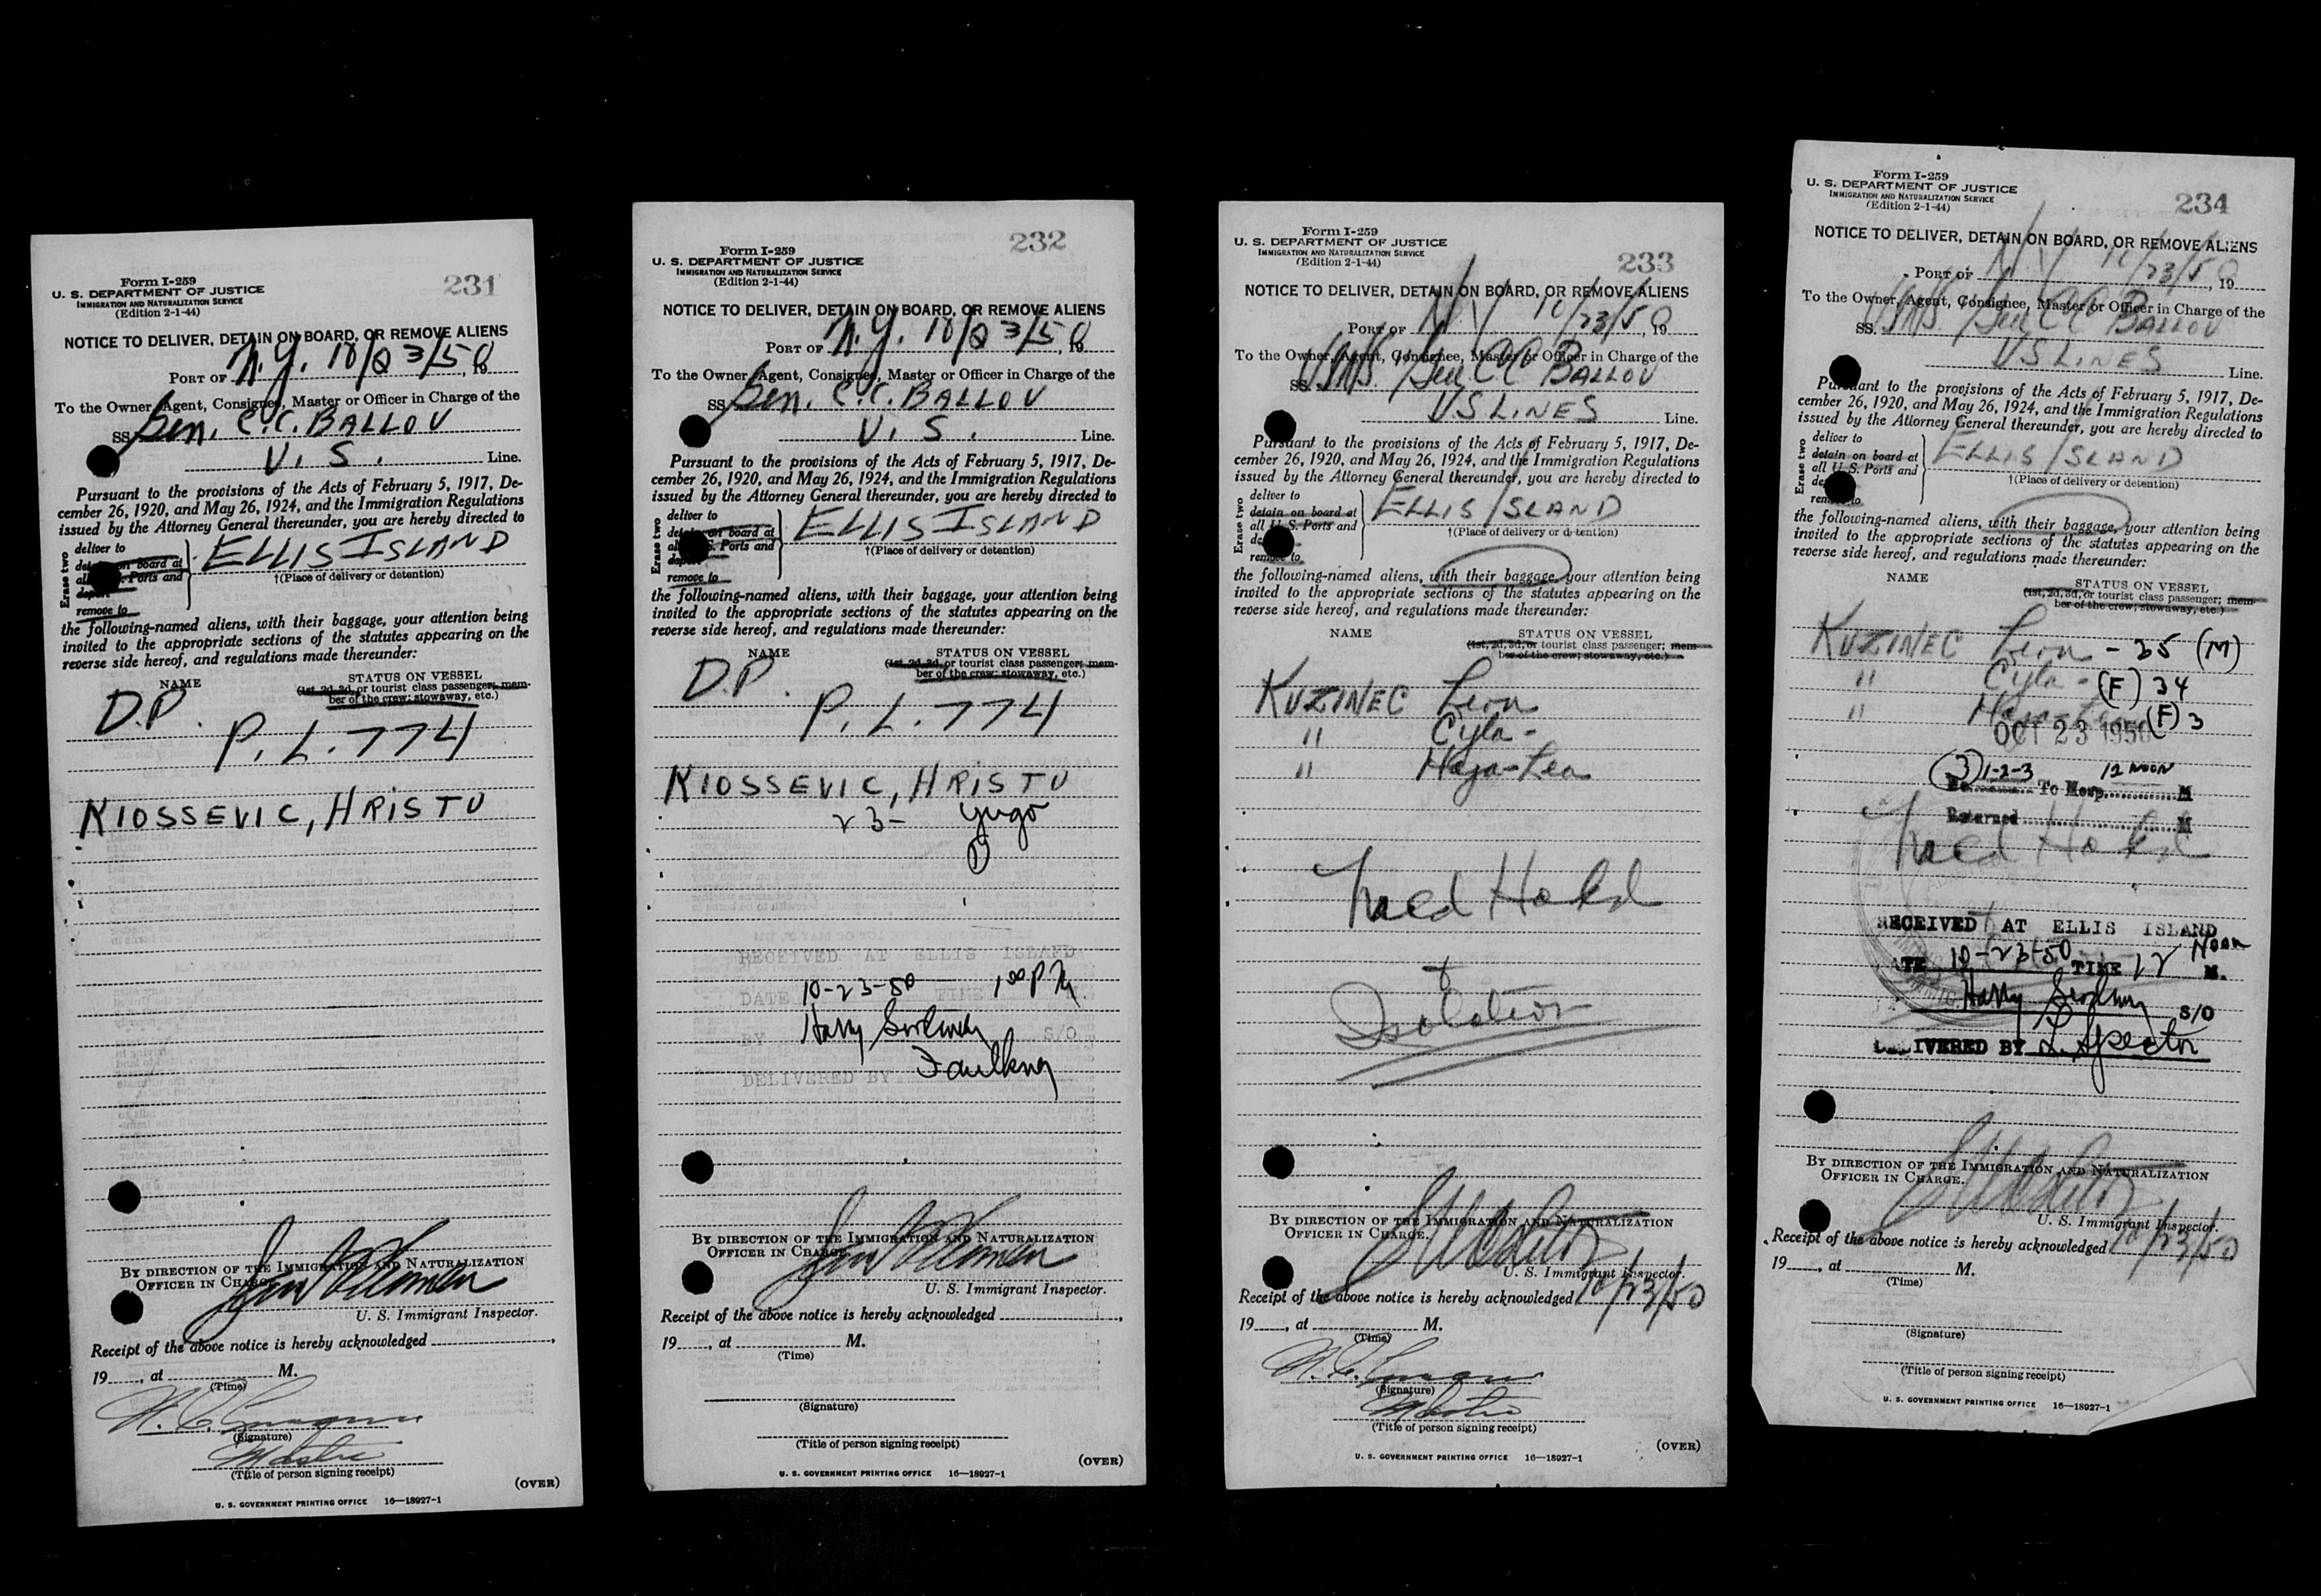 231
Form I-259
U. S. DEPARTMENT OF JUSTICE
IMMIGRATION AND NATURALIZATION SERVICE
(Edition 2-1-44)
NOTICE TO DELIVER, DETAIN ON BOARD, OR REMOVE ALIENS
PORT OF N.Y. 10/23/50, 19
To the Owner, Agent, Consignee, Master or Officer in Charge of the
SS Gen. C.C. BALLOU
U. S. Line.
Pursuant to the provisions of the Acts of February 5, 1917, De-
cember 26, 1920, and May 26, 1924, and the Immigration Regulations
issued by the Attorney General thereunder, you are hereby directed to
Erase two
deliver to
detain on board at
all U.S. Ports and
deport
remove to
ELLIS ISLAND
†(Place of delivery or detention)
the following-named aliens, with their baggage, your attention being
invited to the appropriate sections of the statutes appearing on the
reverse side hereof, and regulations made thereunder:
NAME STATUS ON VESSEL
(1st, 2d, 3d, or tourist class passenger; mem-
ber of the crew; stowaway, etc.)
D.P.
P. L. 774
KIOSSEVIC, HRISTO
BY DIRECTION OF THE IMMIGRATION AND NATURALIZATION
OFFICER IN CHARGE.
U. S. Immigrant Inspector.
Receipt of the above notice is hereby acknowledged
19, at M.
(Time)
(Signature)
Master
(Title of person signing receipt)
(OVER)
U. S. GOVERNMENT PRINTING OFFICE 16—18927-1
232
Form I-259
U. S. DEPARTMENT OF JUSTICE
IMMIGRATION AND NATURALIZATION SERVICE
(Edition 2-1-44)
NOTICE TO DELIVER, DETAIN ON BOARD, OR REMOVE ALIENS
PORT OF N.Y. 10/23/50, 19
To the Owner, Agent, Consignee, Master or Officer in Charge of the
SS Gen. C.C. BALLOU
U. S. Line.
Pursuant to the provisions of the Acts of February 5, 1917, De-
cember 26, 1920, and May 26, 1924, and the Immigration Regulations
issued by the Attorney General thereunder, you are hereby directed to
Erase two
deliver to
detain on board at
all U.S. Ports and
deport
remove to
ELLIS ISLAND
†(Place of delivery or detention)
the following-named aliens, with their baggage, your attention being
invited to the appropriate sections of the statutes appearing on the
reverse side hereof, and regulations made thereunder:
NAME STATUS ON VESSEL
(1st, 2d, 3d, or tourist class passenger; mem-
ber of the crew; stowaway, etc.)
D.P.
P. L. 774
KIOSSEVIC, HRISTO
23- Yugo
RECEIVED AT ELLIS ISLAND
DATE 10-23-50 TIME 1 00 P M.
BY Harry S/O
DELIVERED BY Faulkner
BY DIRECTION OF THE IMMIGRATION AND NATURALIZATION
OFFICER IN CHARGE.
U. S. Immigrant Inspector.
Receipt of the above notice is hereby acknowledged
19, at M.
(Time)
(Signature)
(Title of person signing receipt)
(OVER)
U. S. GOVERNMENT PRINTING OFFICE 16—18927-1
233
Form I-259
U. S. DEPARTMENT OF JUSTICE
IMMIGRATION AND NATURALIZATION SERVICE
(Edition 2-1-44)
NOTICE TO DELIVER, DETAIN ON BOARD, OR REMOVE ALIENS
PORT OF NY 10/23/50, 19
To the Owner, Agent, Consignee, Master or Officer in Charge of the
SS. Gen CC BALLOU
US LINES Line.
Pursuant to the provisions of the Acts of February 5, 1917, De-
cember 26, 1920, and May 26, 1924, and the Immigration Regulations
issued by the Attorney General thereunder, you are hereby directed to
Erase two
deliver to
detain on board at
all U.S. Ports and
deport
remove to
ELLIS ISLAND
†(Place of delivery or detention)
the following-named aliens, with their baggage, your attention being
invited to the appropriate sections of the statutes appearing on the
reverse side hereof, and regulations made thereunder:
NAME STATUS ON VESSEL
(1st, 2d, 3d, or tourist class passenger; mem-
ber of the crew; stowaway, etc.)
KUZINEC Leon
" Cyla -
" Haja-Lea
Med Hold
+
Isolation
BY DIRECTION OF THE IMMIGRATION AND NATURALIZATION
OFFICER IN CHARGE.
U. S. Immigrant Inspector.
Receipt of the above notice is hereby acknowledged 10/23/50
19, at M.
(Time)
(Signature)
Master
(Title of person signing receipt)
(OVER)
U. S. GOVERNMENT PRINTING OFFICE 16—18927-1
234
Form I-259
U. S. DEPARTMENT OF JUSTICE
IMMIGRATION AND NATURALIZATION SERVICE
(Edition 2-1-44)
NOTICE TO DELIVER, DETAIN ON BOARD, OR REMOVE ALIENS
PORT OF NY 10/23/50, 19
To the Owner, Agent, Consignee, Master or Officer in Charge of the
SS. Gen CC BALLOU
US LINES Line.
Pursuant to the provisions of the Acts of February 5, 1917, De-
cember 26, 1920, and May 26, 1924, and the Immigration Regulations
issued by the Attorney General thereunder, you are hereby directed to
Erase two
deliver to
detain on board at
all U.S. Ports and
deport
remove to
ELLIS ISLAND
†(Place of delivery or detention)
the following-named aliens, with their baggage, your attention being
invited to the appropriate sections of the statutes appearing on the
reverse side hereof, and regulations made thereunder:
NAME STATUS ON VESSEL
(1st, 2d, 3d, or tourist class passenger; mem-
ber of the crew; stowaway, etc.)
KUZINEC Leon - 35 (M)
" Cyla - (F) 34
" Haja-Lea (F) 3
OCT 23 1950
(3) 1-2-3 12 NOON
No. To Hosp. M
Returned M
Med Hold
+
RECEIVED AT ELLIS ISLAND
DATE 10-23-50 TIME 12 Noon M.
Harry S/O
DELIVERED BY L. Spector
BY DIRECTION OF THE IMMIGRATION AND NATURALIZATION
OFFICER IN CHARGE.
U. S. Immigrant Inspector.
Receipt of the above notice is hereby acknowledged 10/23/50
19, at M.
(Time)
(Signature)
(Title of person signing receipt)
U. S. GOVERNMENT PRINTING OFFICE 16—18927-1